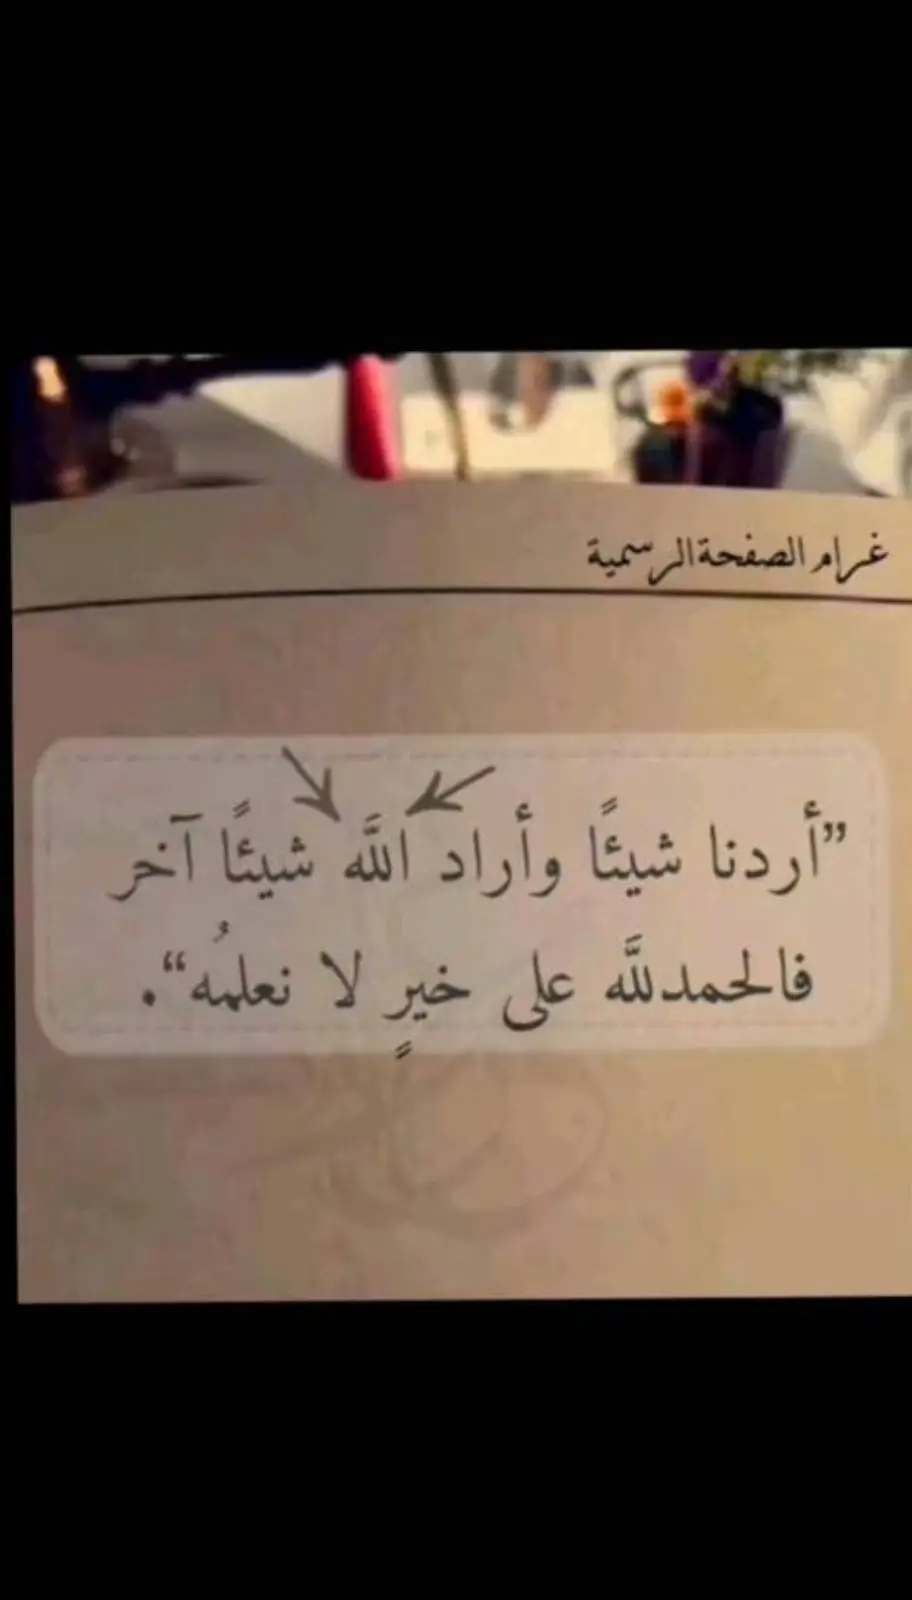 غرام الصفحة الرسمية
”أردنا شيئًا وأراد اللَّه شيئًا آخر
فالحمدللَّه على خيرٍ لا نعلمُه“.